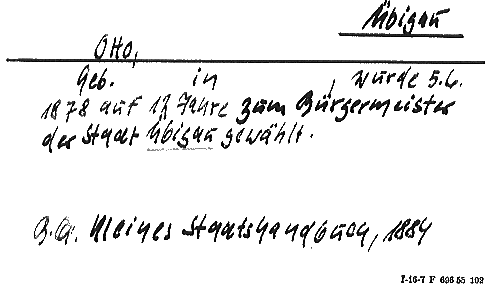 Übigau
Otto,
Geb. in , wurde 5.6.
1878 auf 12 Jahre zum Bürgermeister
der Stadt Übigau gewählt.
B.A. Kleines Staatshandbuch, 1884
7-16-7 F 696 55 102